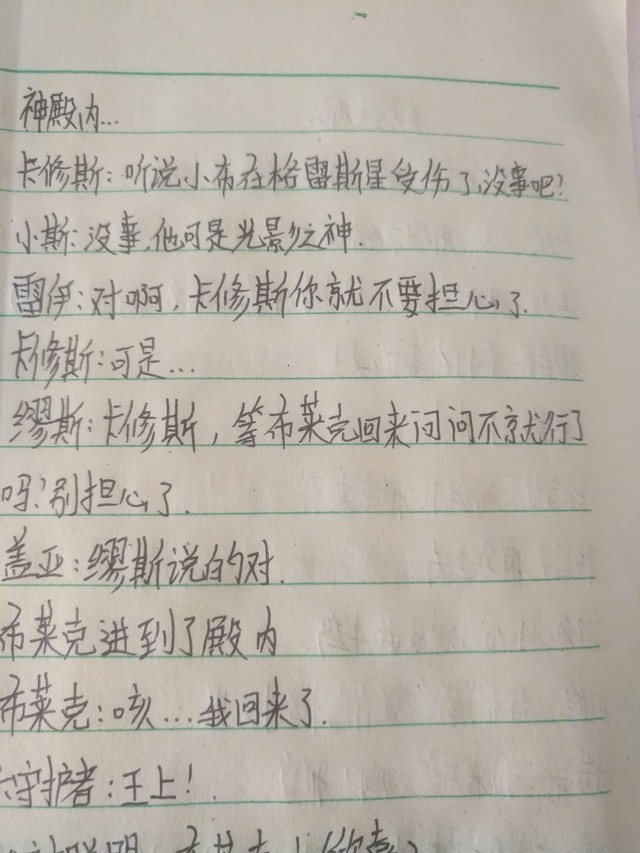 神殿内...
卡修斯:听说小布在格雷斯星受伤了,没事吧?
小斯:没事,他可是光影之神.
雷伊:对啊,卡修斯你就不要担心了.
卡修斯:可是...
缪斯:卡修斯,等布莱克回来问问不就行了
吗?别担心了.
盖亚:缪斯说的对.
布莱克进到了殿内
布莱克:咳...我回来了.
守护者:王上!